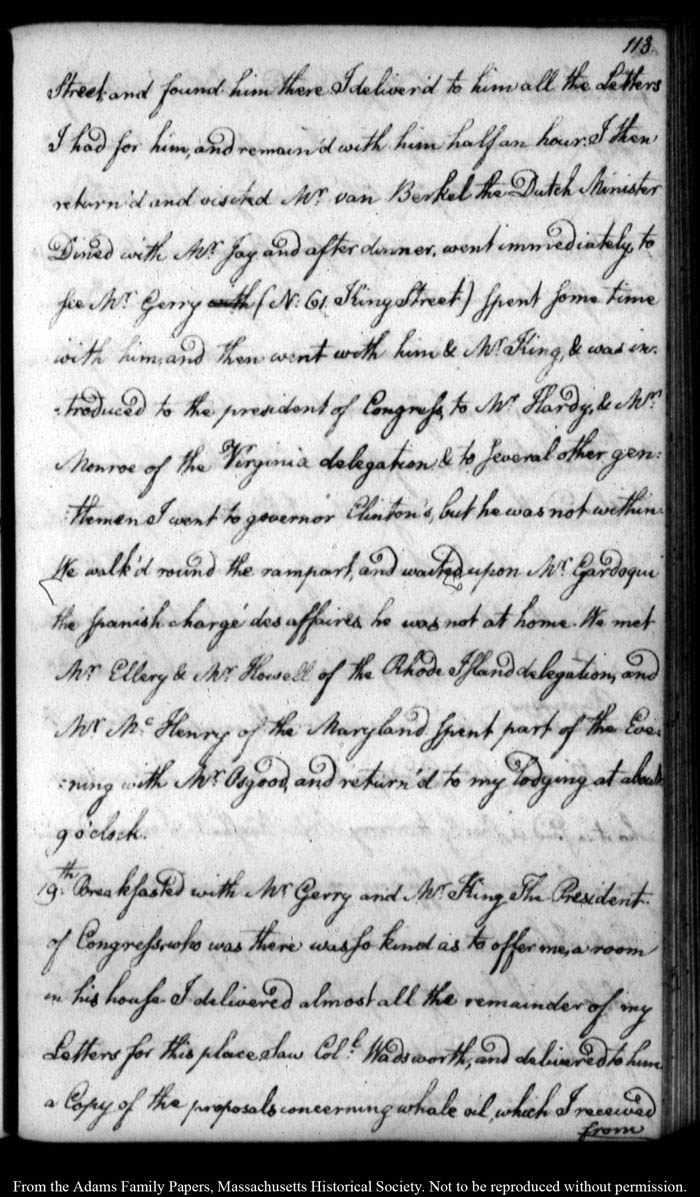 113.
Street, and found him there I deliver'd to him all the Letters
I had for him, and remain'd with him half an hour. I then
return'd and visited Mr. van Berkel the Dutch Minister
Dined with Mr. Jay and after dinner, went immediately, to
see Mr. Gerry with (N: 61. King Street.) spent some time
with him, and then went with him & Mr. King, & was in-
:troduced to the president of Congress, to Mr. Hardy, & Mr.
Monroe of the Virginia delegation, & to several other gen:
:tlemen I went to governor Clinton's, but he was not within.
We walk'd round the rampart, and waited upon Mr. Gardoqui
the spanish chargé des affaires, he was not at home. We met
Mr. Ellery & Mr. Howell of the Rhode Island delegation, and
Mr. Mc.Henry of the Maryland. Spent part of the Eve:
:ning with Mr. Osgood, and return'd to my lodging at about
9 o'clock.
19th. Breakfasted with Mr. Gerry and Mr. King The President
of Congress, who was there was so kind as to offer me, a room
in his house. I delivered almost all the remainder of my
Letters for this place. Saw Coll. Wadsworth, and delivered to him
a Copy of the proposals concerning whale oil, which I received
from
From the Adams Family Papers, Massachusetts Historical Society. Not to be reproduced without permission.